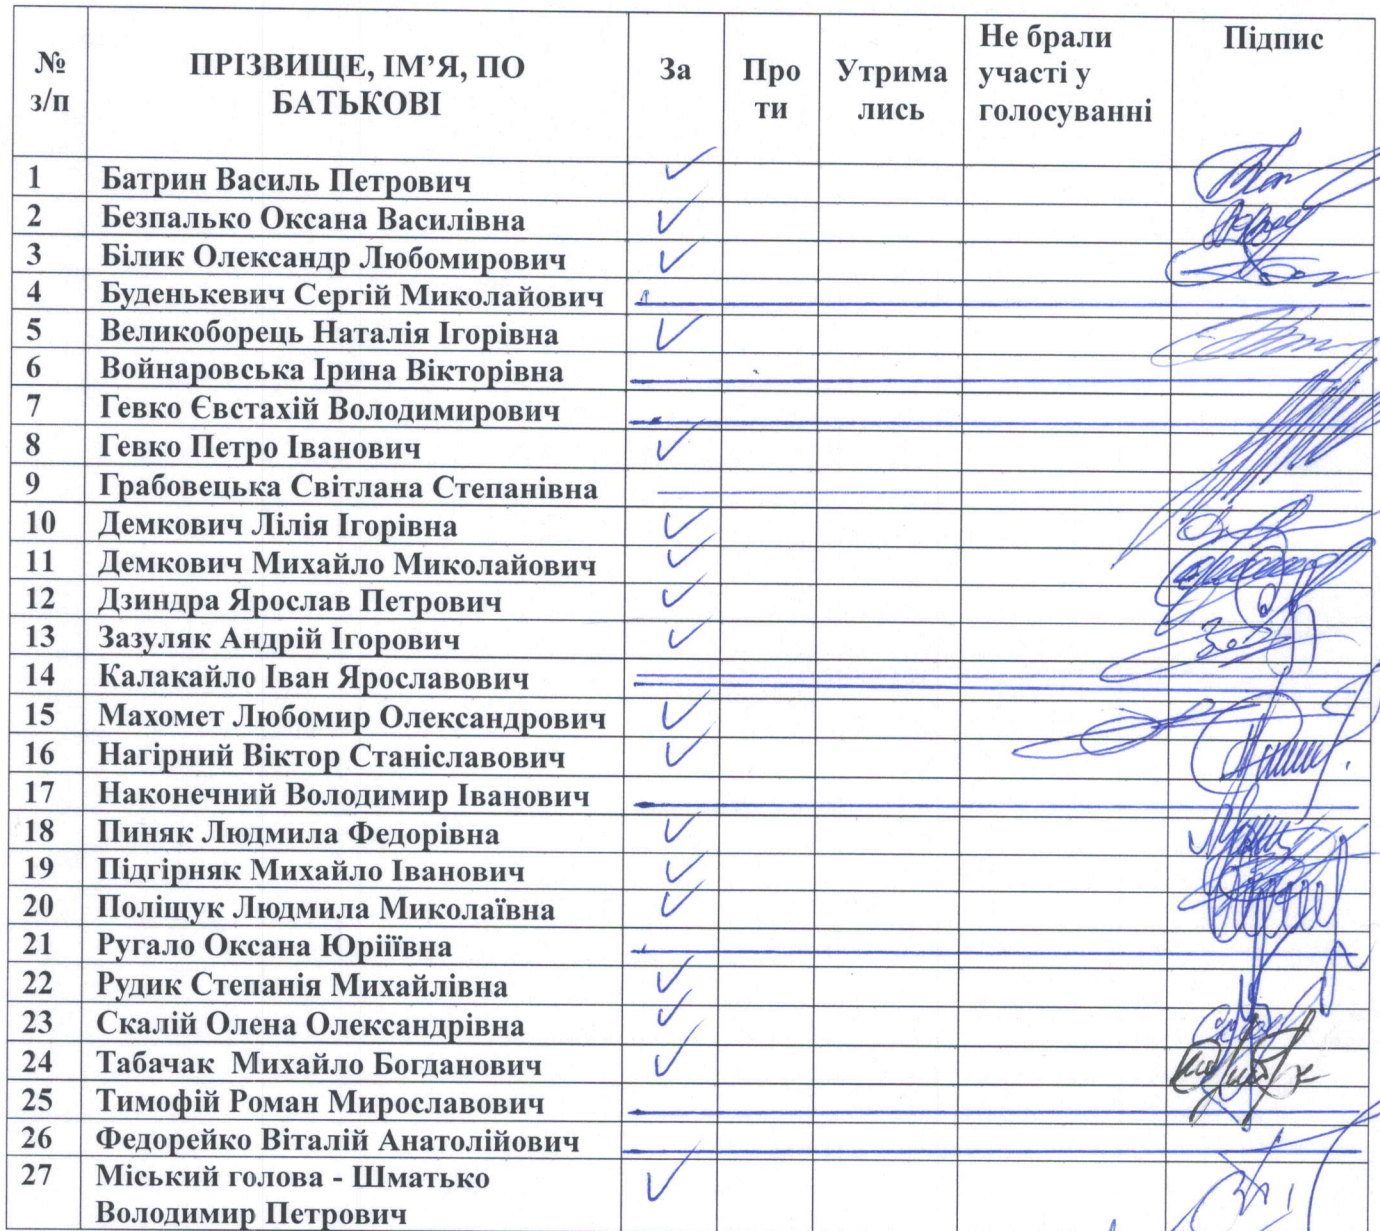 № з/п ПРІЗВИЩЕ, ІМ’Я, ПО БАТЬКОВІ За Про ти Утрима лись Не брали участі у голосуванні Підпис
1 Батрин Василь Петрович ✓
2 Безпалько Оксана Василівна ✓
3 Білик Олександр Любомирович ✓
4 Буденькевич Сергій Миколайович
5 Великоборець Наталія Ігорівна ✓
6 Войнаровська Ірина Вікторівна
7 Гевко Євстахій Володимирович
8 Гевко Петро Іванович ✓
9 Грабовецька Світлана Степанівна
10 Демкович Лілія Ігорівна ✓
11 Демкович Михайло Миколайович ✓
12 Дзиндра Ярослав Петрович ✓
13 Зазуляк Андрій Ігорович ✓
14 Калакайло Іван Ярославович
15 Махомет Любомир Олександрович ✓
16 Нагірний Віктор Станіславович ✓
17 Наконечний Володимир Іванович
18 Пиняк Людмила Федорівна ✓
19 Підгірняк Михайло Іванович ✓
20 Поліщук Людмила Миколаївна ✓
21 Ругало Оксана Юріїївна
22 Рудик Степанія Михайлівна ✓
23 Скалій Олена Олександрівна ✓
24 Табачак Михайло Богданович ✓
25 Тимофій Роман Мирославович
26 Федорейко Віталій Анатолійович
27 Міський голова - Шматько ✓
Володимир Петрович